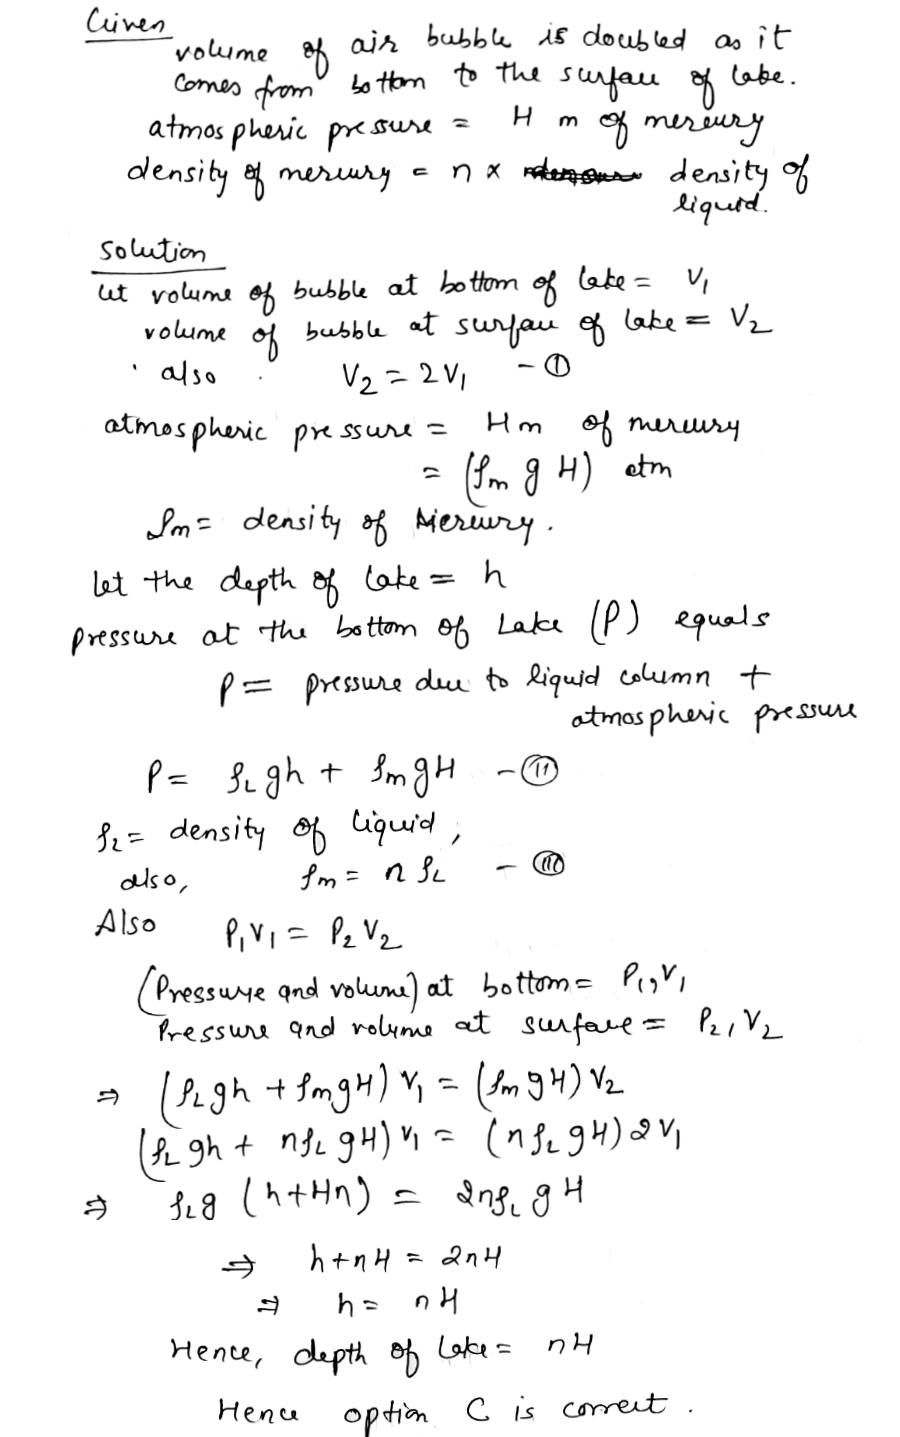 Given
volume of air bubble is doubled as it
comes from bottom to the surface of lake.
atmospheric pressure = H m of mercury
density of mercury = n x density of
liquid.
Solution
let volume of bubble at bottom of lake = V₁
volume of bubble at surface of lake = V₂
also V₂ = 2V₁ - ①
atmospheric pressure = H m of mercury
= (ρm g H) atm
ρm = density of Mercury.
let the depth of lake = h
pressure at the bottom of Lake (P) equals
P = pressure due to liquid column +
atmospheric pressure
P = ρL gh + ρm gH - (II)
ρL = density of liquid,
also, ρm = n ρL - (III)
Also P₁V₁ = P₂V₂
(Pressure and volume) at bottom = P₁, V₁
Pressure and volume at surface = P₂, V₂
⇒ (ρL gh + ρm gH) V₁ = (ρm gH) V₂
(ρL gh + nρL gH) V₁ = (nρL gH) 2V₁
⇒ ρL g (h + Hn) = 2nρL g H
⇒ h + nH = 2nH
⇒ h = nH
Hence, depth of lake = nH
Hence option C is correct.